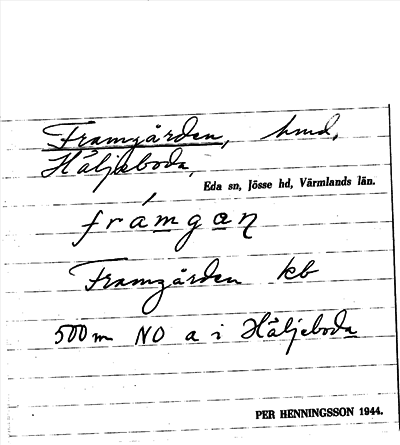 Framgården, hmd,
Häljeboda,
Eda sn, Jösse hd, Värmlands län.
frámgan
Framgården kb
500 m NO a i Häljeboda
PER HENNINGSSON 1944.